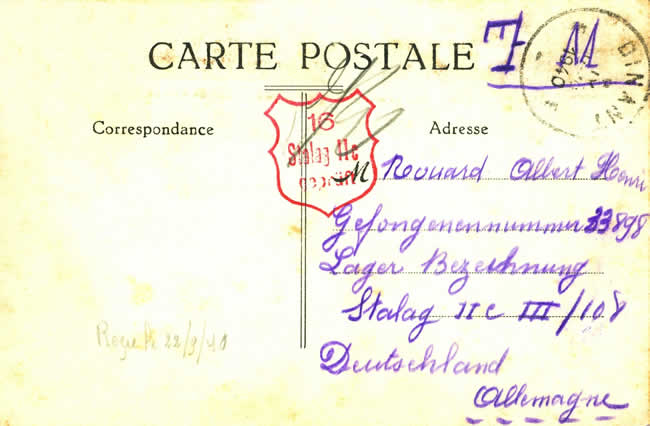 CARTE POSTALE
F M
DINANT
1940
Correspondance
Adresse
16
Stalag IIc
geprüft
M
Rouard Albert Henri
Gefongenennummer 33898
Lager Bezeichnung
Stalag IIc III/108
Deutschland
Allemagne
Reçu le 22/9/40